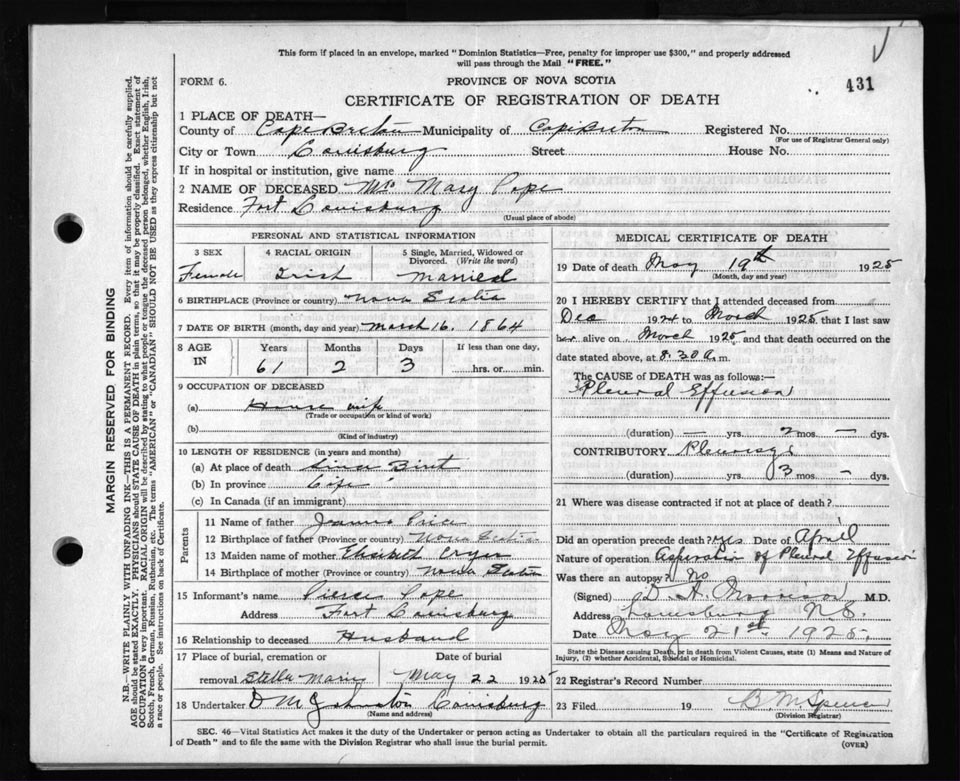 This form if placed in an envelope, marked "Dominion Statistics—Free, penalty for improper use $300," and properly addressed
will pass through the Mail "FREE."
FORM 6.
PROVINCE OF NOVA SCOTIA
431
CERTIFICATE OF REGISTRATION OF DEATH
1 PLACE OF DEATH—
County of Cape Breton Municipality of Cape Breton Registered No.
(For use of Registrar General only)
City or Town Louisburg Street House No.
If in hospital or institution, give name
2 NAME OF DECEASED Mrs Mary Pope
Residence Fort Louisburg
(Usual place of abode)
PERSONAL AND STATISTICAL INFORMATION
3 SEX 4 RACIAL ORIGIN 5 Single, Married, Widowed or
Divorced. (Write the word)
Female Irish Married
6 BIRTHPLACE (Province or country) Nova Scotia
7 DATE OF BIRTH (month, day and year) March 16. 1864
8 AGE IN Years Months Days If less than one day,
61 2 3 hrs. or min.
9 OCCUPATION OF DECEASED
(a) House wife
(Trade or occupation or kind of work)
(b)
(Kind of industry)
10 LENGTH OF RESIDENCE (in years and months)
(a) At place of death Since Birth
(b) In province Life
(c) In Canada (if an immigrant)
Parents
11 Name of father James Price
12 Birthplace of father (Province or country) Nova Scotia
13 Maiden name of mother Elisabeth
14 Birthplace of mother (Province or country) Nova Scotia
15 Informant's name Pierce Pope
Address Fort Louisburg
16 Relationship to deceased Husband
17 Place of burial, cremation or Date of burial
removal Stella Maris May 22 1925
18 Undertaker D M Johnston Louisburg
(Name and address)
MEDICAL CERTIFICATE OF DEATH
19 Date of death May 19th 1925
(Month, day and year)
20 I HEREBY CERTIFY that I attended deceased from
Dec 1924 to March 1925, that I last saw
her alive on March 1925, and that death occurred on the
date stated above, at 8.30 a.m.
The CAUSE of DEATH was as follows:—
Pleural Effusion
(duration) — yrs. 2 mos. — dys.
CONTRIBUTORY Pleurisy
(duration) yrs. 3 mos. — dys.
21 Where was disease contracted if not at place of death?
Did an operation precede death? Yes Date of April
Nature of operation Aspiration of Pleural Effusion
Was there an autopsy? No
(Signed) D. A. Morrison M.D.
Address Louisburg NS
Date May 21st 1925.
State the Disease causing Death, or in death from Violent Causes, state (1) Means and Nature of
Injury, (2) whether Accidental, Suicidal or Homicidal.
22 Registrar's Record Number
23 Filed 19 B M Spencer
(Division Registrar)
SEC. 46—Vital Statistics Act makes it the duty of the Undertaker or person acting as Undertaker to obtain all the particulars required in the "Certificate of Registration
of Death" and to file the same with the Division Registrar who shall issue the burial permit.
(OVER)
MARGIN RESERVED FOR BINDING
N.B.—WRITE PLAINLY WITH UNFADING INK—THIS IS A PERMANENT RECORD. Every item of information should be carefully supplied.
AGE should be stated EXACTLY. PHYSICIANS should STATE CAUSE OF DEATH in plain terms, so that it may be properly classified. Exact statement of
OCCUPATION is very important. RACIAL ORIGIN will be described by stating to what people or tongue the deceased person belonged, whether English, Irish,
Scotch, French, German, Russian, Ruthenian, etc. The terms "AMERICAN" or "CANADIAN" SHOULD NOT BE USED as they express citizenship but not
a race or people. See instructions on back of Certificate.